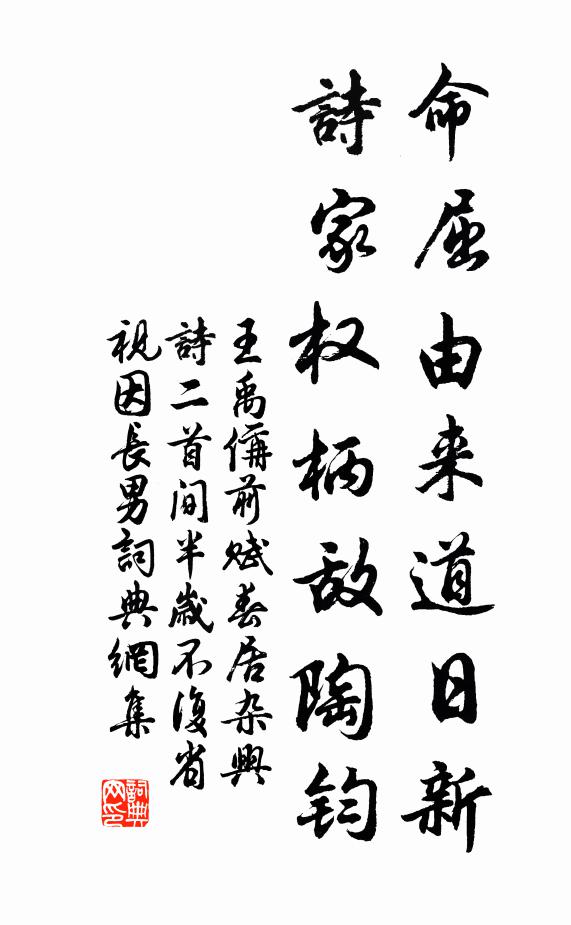 命屈由来道日新
詩家权柄敌陶钧
王禹偁前赋春居杂興
詩二首间半歲不復省
視因長男詞典網集
詞典网印